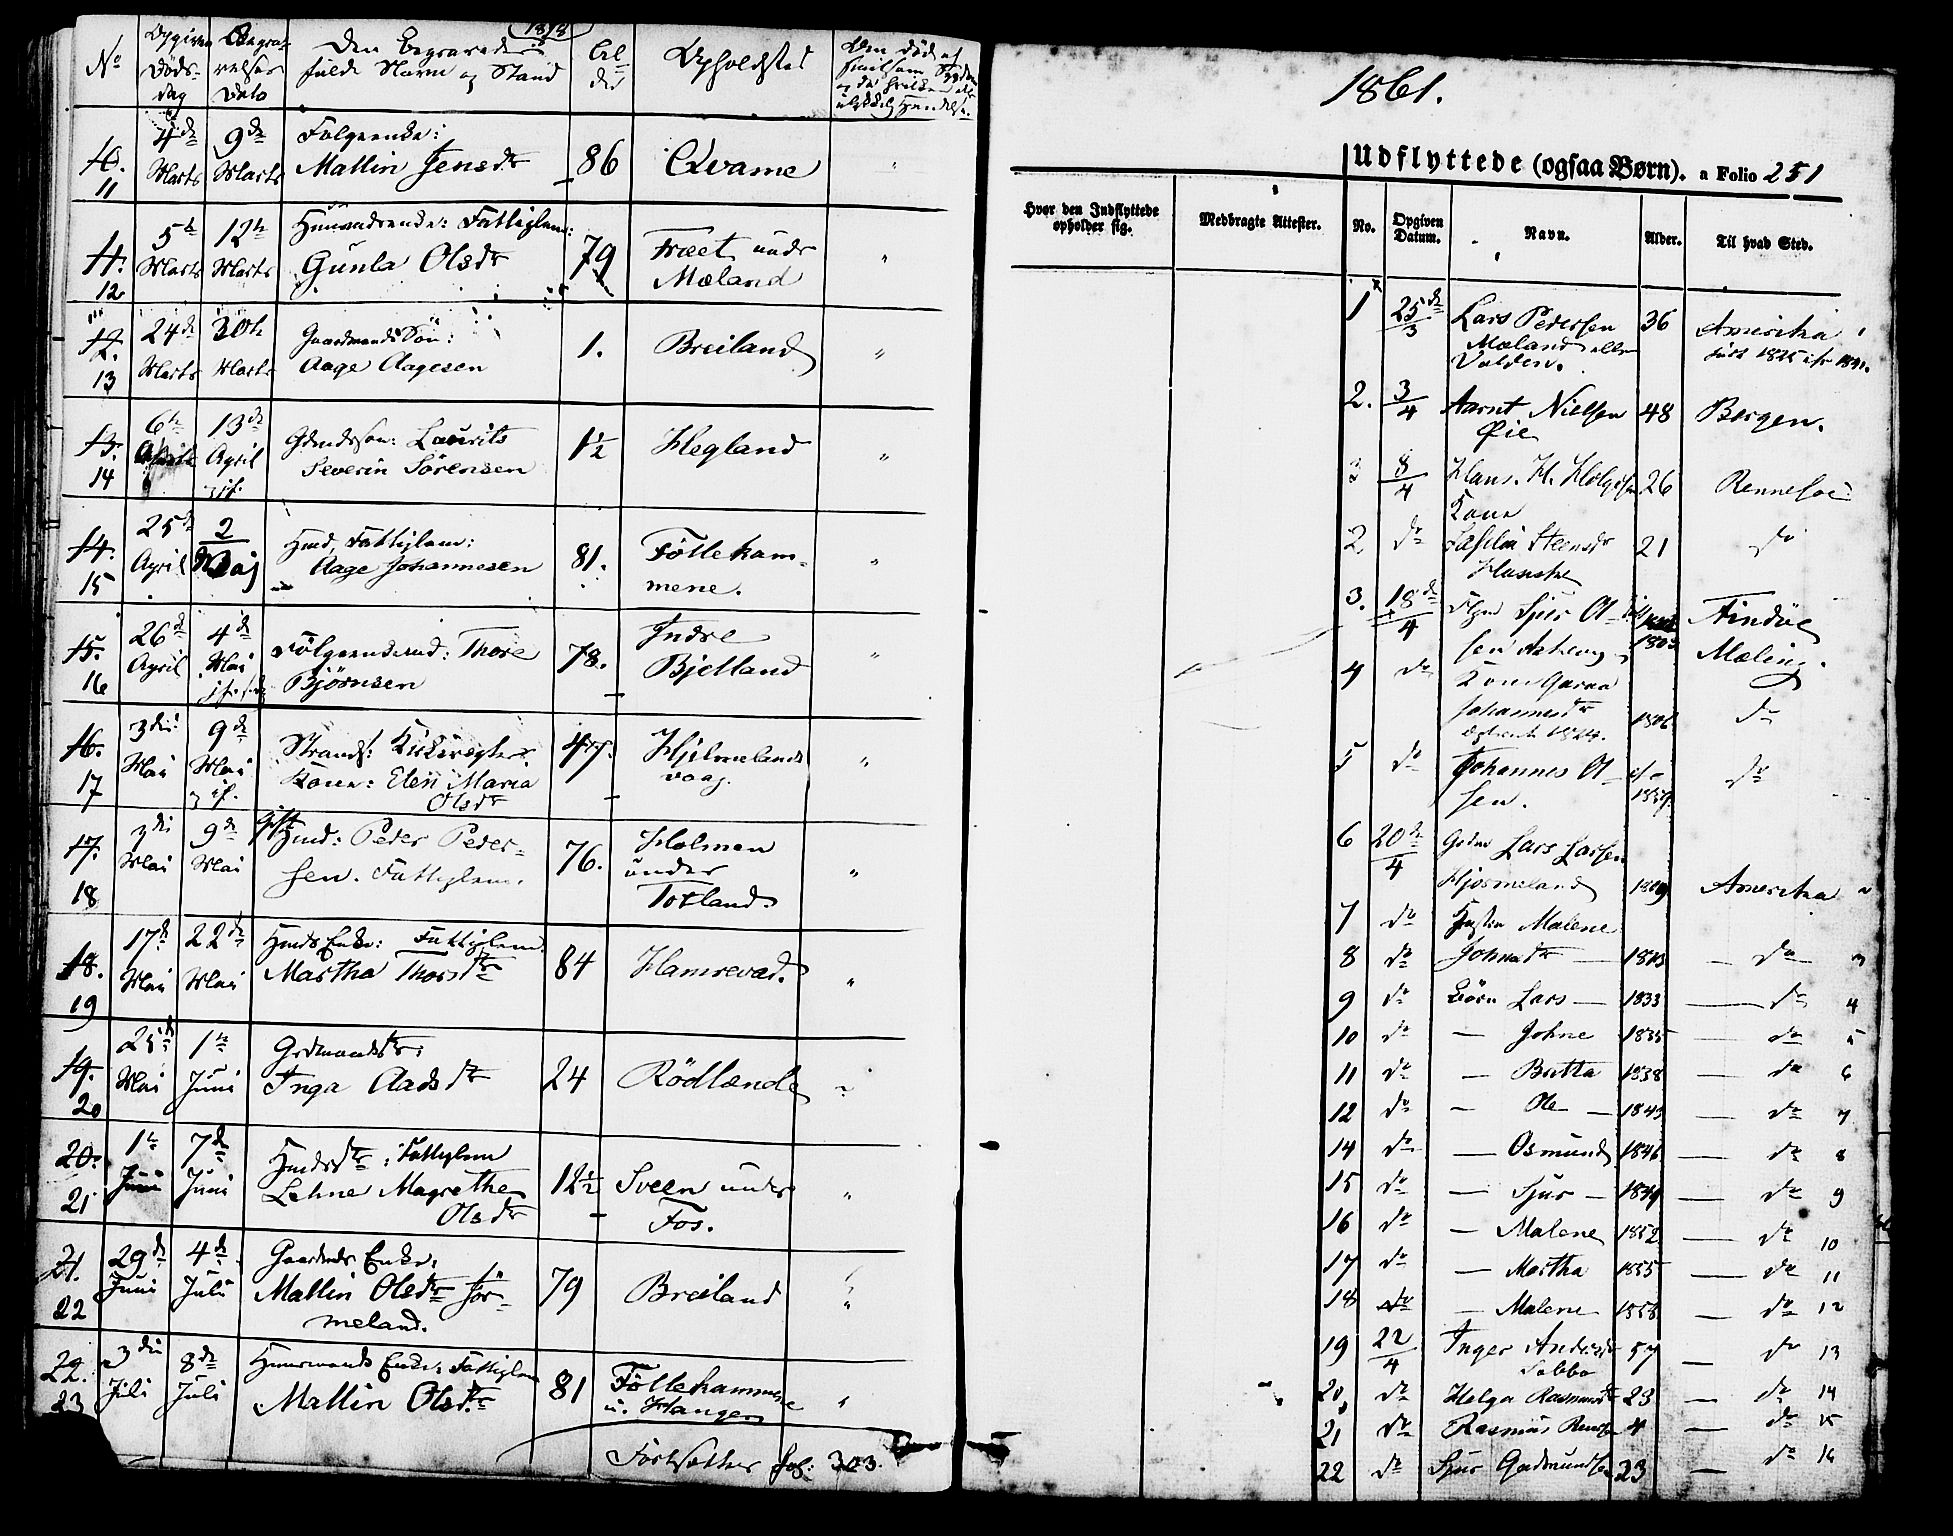 1878
No
Opgiven Døds- dag
Begra- velses Dato
Den Begravedes
fulde Navn og Stand
Al- der
Opholdsted
10. 11
4de Marts
9de Marts
Folgeenke:
Mallin Jensdtr
86
Qvame
"
11. 12
5te Marts
12te Marts
Gunla Olsdtr
79
Træet under
Mæland
"
12. 13
24de Marts
30te Marts
Gaardmands Søn:
Aage Aagesen
1.
Breiland
"
13. 14
6te April
13de April
Laurits
Severin Sörensen
1½
Hegland
"
14. 15
25de April
2 Maj
Hmd, Fattiglem:
Aage Johannesen
81.
Föllekam-
mene.
"
15. 16
26de April
4de Mai
Fölgeenkemd: Thore
Björnsen
78.
Indre
Bjelland
"
16. 17
3die Mai
9de Mai
Kone: Elen Maria
Olsdtr
47.
Hjelmelands
vaag.
"
17. 18
3die Mai
9de Mai
gift
Hmd: Peder Peder-
sen. Fattiglem.
76.
Holmen
under
Totland
"
18. 19
17de Mai
22de Mai
Hmds Enke: Fattiglem.
Martha Thorsdtr
84
Hamrevad.
"
19. 20
25de Mai
1te Juni
Grdmandsdtr:
Inga Aadsdtr
24
Rödlende
"
20. 21
1te Juni
7de Juni
Hmdsdtr: Fattiglem
Lehne Magrethe
Olsdtr
12½
Sveen under
Fos.
"
21. 22
29de Juni
4de Juli
Gaardmds Enke:
Mallin Olsdtr Hör-
meland.
79
Breiland
"
22. 23
3die Juli
8de Juli
Huusmands Enke, Fattiglem
Mallin Olsdtr
81
Föllekammene
u. Hanger
"
Fortsættes fol: 303.
1861.
Udflyttede (ogsaa Børn). a Folio 251
Hvor den Indflyttede
opholder sig.
Medbragte Attester.
No.
Opgiven
Datum.
Navn.
Alder.
Til hvad Sted.
1 25de/3 Lars Pedersen 36 Amerika 1
Mæland eller
Valden.
2. 3/4 Aarnt Nielsen 48 Bergen.
Øie
3 8/4 Hans. H. Helgesen 26 Rennesøe
Kone
2. do Steensdr 21 do
3. 18de/4 Sjur Ol- Findöe
sen 1803 Mæling.
4 do Kone
Johannesdtr 1806 do
5 do Johannes Ol- do
sen.
6 20de/4 Grdm Lars Larsen
Hjormeland 1809 Amerika 2
7 do Hustru Malene
8 do Johnsdtr — 1813 — do 3
9 do Börn Lars — 1833 — do 4
10 do — Johne 1835 — do 5
11 do — Britta 1838 — do 6
12 do — Ole — 1843 — do 7
14 do — Osmund 1846 — do 8
15 do — Sjur — 1849 — do 9
16 do — Malene 1852 — do 10
17 do — Martha 1855 — do 11
18 do — Malene 1858 — do 12
19 22/4 Inger Andersdr 57 — do 13
20 do Helga Rasmusdtr 23 — do 14
21 do Rasmus 4 — do 15
22 do Sjur Gudmundsen 23 — do 16